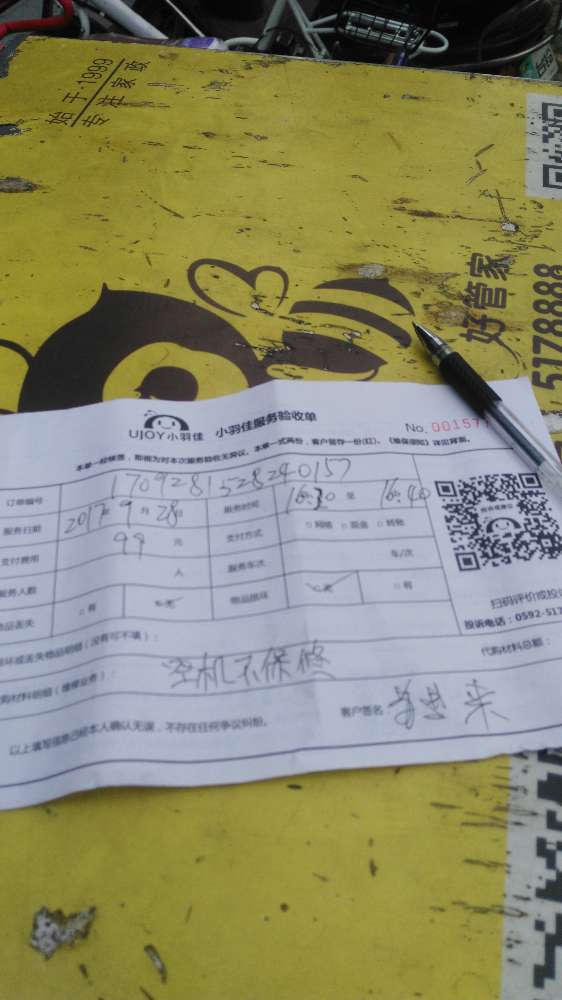 始于·1999
专注家政
好管家
5178888
UJOY小羽佳 小羽佳服务验收单
No. 00157
本单一经签署，即视为对本次服务验收无异议。本单一式两份，客户留存一份(红)。《维保须知》详见背面。
订单编号 1709281528240157
服务日期 2017年9月28日 服务时间 16:30 至 16:40
支付费用 99 元 支付方式 □网络 □现金 □转账
服务人数 人 服务车次 车/次
物品丢失 □有 □无 物品损坏 □无 □有
损坏或丢失物品明细（没有可不填）：
扫码评价或投
投诉电话：0592-517
购材料明细（维修业务）： 空机不保修 代购材料总额：
以上填写信息已经本人确认无误，不存在任何争议纠纷。 客户签名